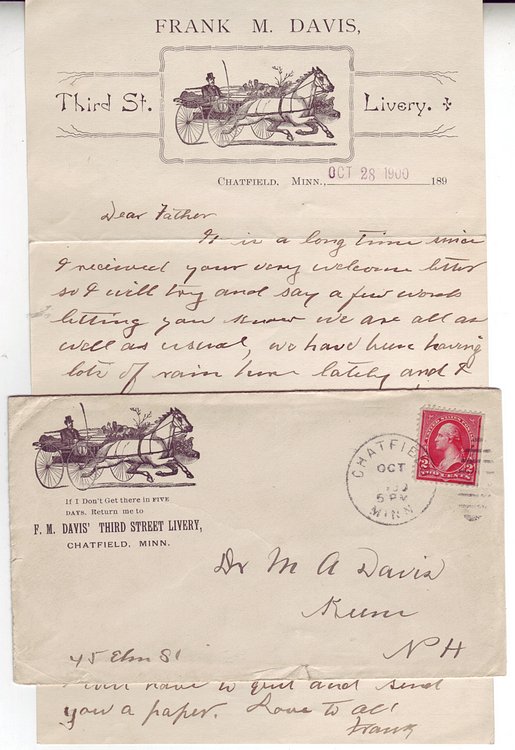 FRANK M. DAVIS,
Third St. Livery.
CHATFIELD, MINN., OCT 28 1900 189
Dear Father
It is a long time since
I received your very welcome letter
so I will try and say a few words
letting you know we are all as
well as usual, we have been having
lots of rain here lately and I
If I Don't Get there in FIVE
DAYS. Return me to
F. M. DAVIS' THIRD STREET LIVERY,
CHATFIELD, MINN.
CHATFIE
OCT
5 PM
MINN
UNITED STATES
2 2
TWO CENTS
Dr M A Davis
N H
45 Elm St
have to quit and send
you a paper. Love to all
Frank